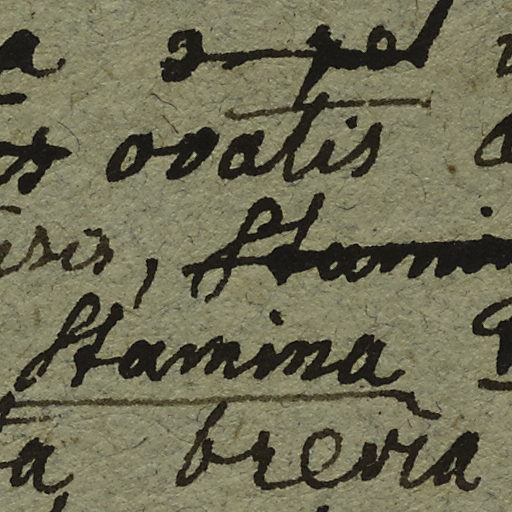 a 3-pel
ovatis
isis, Stamin
Stamina
ta, brevia